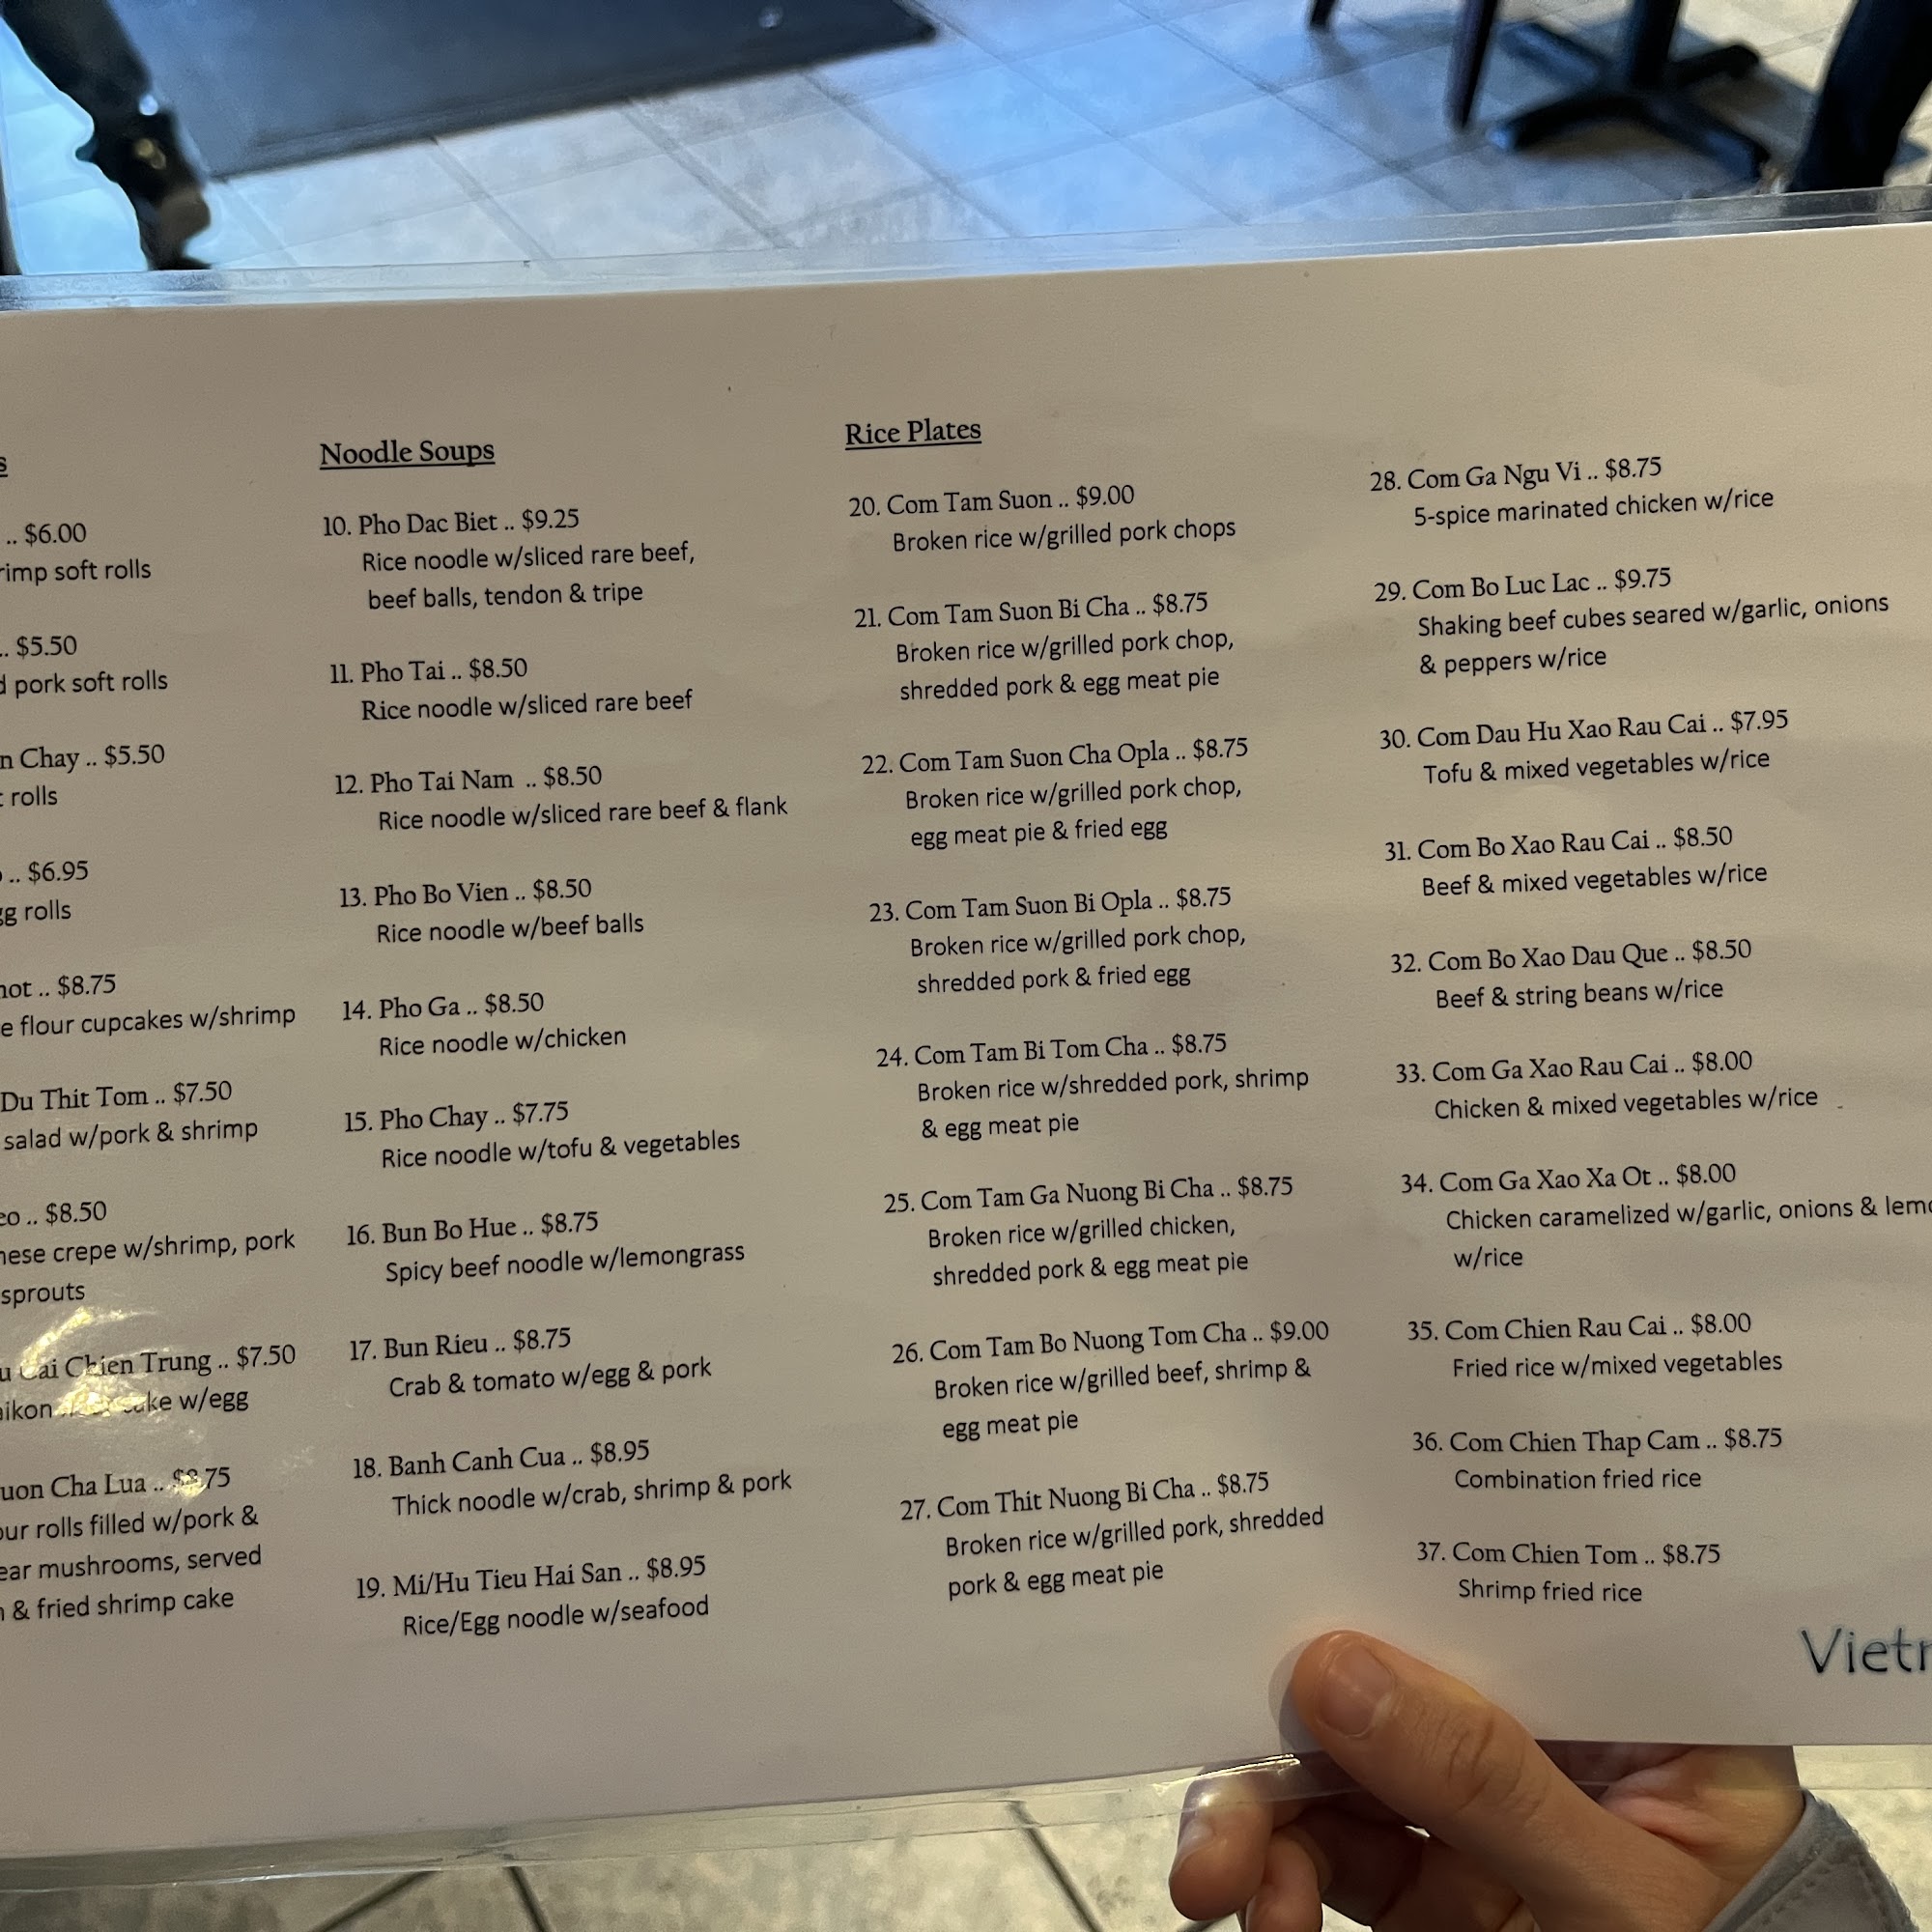 s
.. $6.00
rimp soft rolls
.. $5.50
d pork soft rolls
n Chay .. $5.50
rolls
.. $6.95
gg rolls
hot .. $8.75
e flour cupcakes w/shrimp
Du Thit Tom .. $7.50
salad w/pork & shrimp
eo .. $8.50
nese crepe w/shrimp, pork
sprouts
u Cai Chien Trung .. $7.50
aikon cake w/egg
uon Cha Lua .. $8.75
our rolls filled w/pork &
ear mushrooms, served
& fried shrimp cake
Noodle Soups
10. Pho Dac Biet .. $9.25
Rice noodle w/sliced rare beef,
beef balls, tendon & tripe
11. Pho Tai .. $8.50
Rice noodle w/sliced rare beef
12. Pho Tai Nam .. $8.50
Rice noodle w/sliced rare beef & flank
13. Pho Bo Vien .. $8.50
Rice noodle w/beef balls
14. Pho Ga .. $8.50
Rice noodle w/chicken
15. Pho Chay .. $7.75
Rice noodle w/tofu & vegetables
16. Bun Bo Hue .. $8.75
Spicy beef noodle w/lemongrass
17. Bun Rieu .. $8.75
Crab & tomato w/egg & pork
18. Banh Canh Cua .. $8.95
Thick noodle w/crab, shrimp & pork
19. Mi/Hu Tieu Hai San .. $8.95
Rice/Egg noodle w/seafood
Rice Plates
20. Com Tam Suon .. $9.00
Broken rice w/grilled pork chops
21. Com Tam Suon Bi Cha .. $8.75
Broken rice w/grilled pork chop,
shredded pork & egg meat pie
22. Com Tam Suon Cha Opla .. $8.75
Broken rice w/grilled pork chop,
egg meat pie & fried egg
23. Com Tam Suon Bi Opla .. $8.75
Broken rice w/grilled pork chop,
shredded pork & fried egg
24. Com Tam Bi Tom Cha .. $8.75
Broken rice w/shredded pork, shrimp
& egg meat pie
25. Com Tam Ga Nuong Bi Cha .. $8.75
Broken rice w/grilled chicken,
shredded pork & egg meat pie
26. Com Tam Bo Nuong Tom Cha .. $9.00
Broken rice w/grilled beef, shrimp &
egg meat pie
27. Com Thit Nuong Bi Cha .. $8.75
Broken rice w/grilled pork, shredded
pork & egg meat pie
28. Com Ga Ngu Vi .. $8.75
5-spice marinated chicken w/rice
29. Com Bo Luc Lac .. $9.75
Shaking beef cubes seared w/garlic, onions
& peppers w/rice
30. Com Dau Hu Xao Rau Cai .. $7.95
Tofu & mixed vegetables w/rice
31. Com Bo Xao Rau Cai .. $8.50
Beef & mixed vegetables w/rice
32. Com Bo Xao Dau Que .. $8.50
Beef & string beans w/rice
33. Com Ga Xao Rau Cai .. $8.00
Chicken & mixed vegetables w/rice
34. Com Ga Xao Xa Ot .. $8.00
Chicken caramelized w/garlic, onions & lemo
w/rice
35. Com Chien Rau Cai .. $8.00
Fried rice w/mixed vegetables
36. Com Chien Thap Cam .. $8.75
Combination fried rice
37. Com Chien Tom .. $8.75
Shrimp fried rice
Vietn